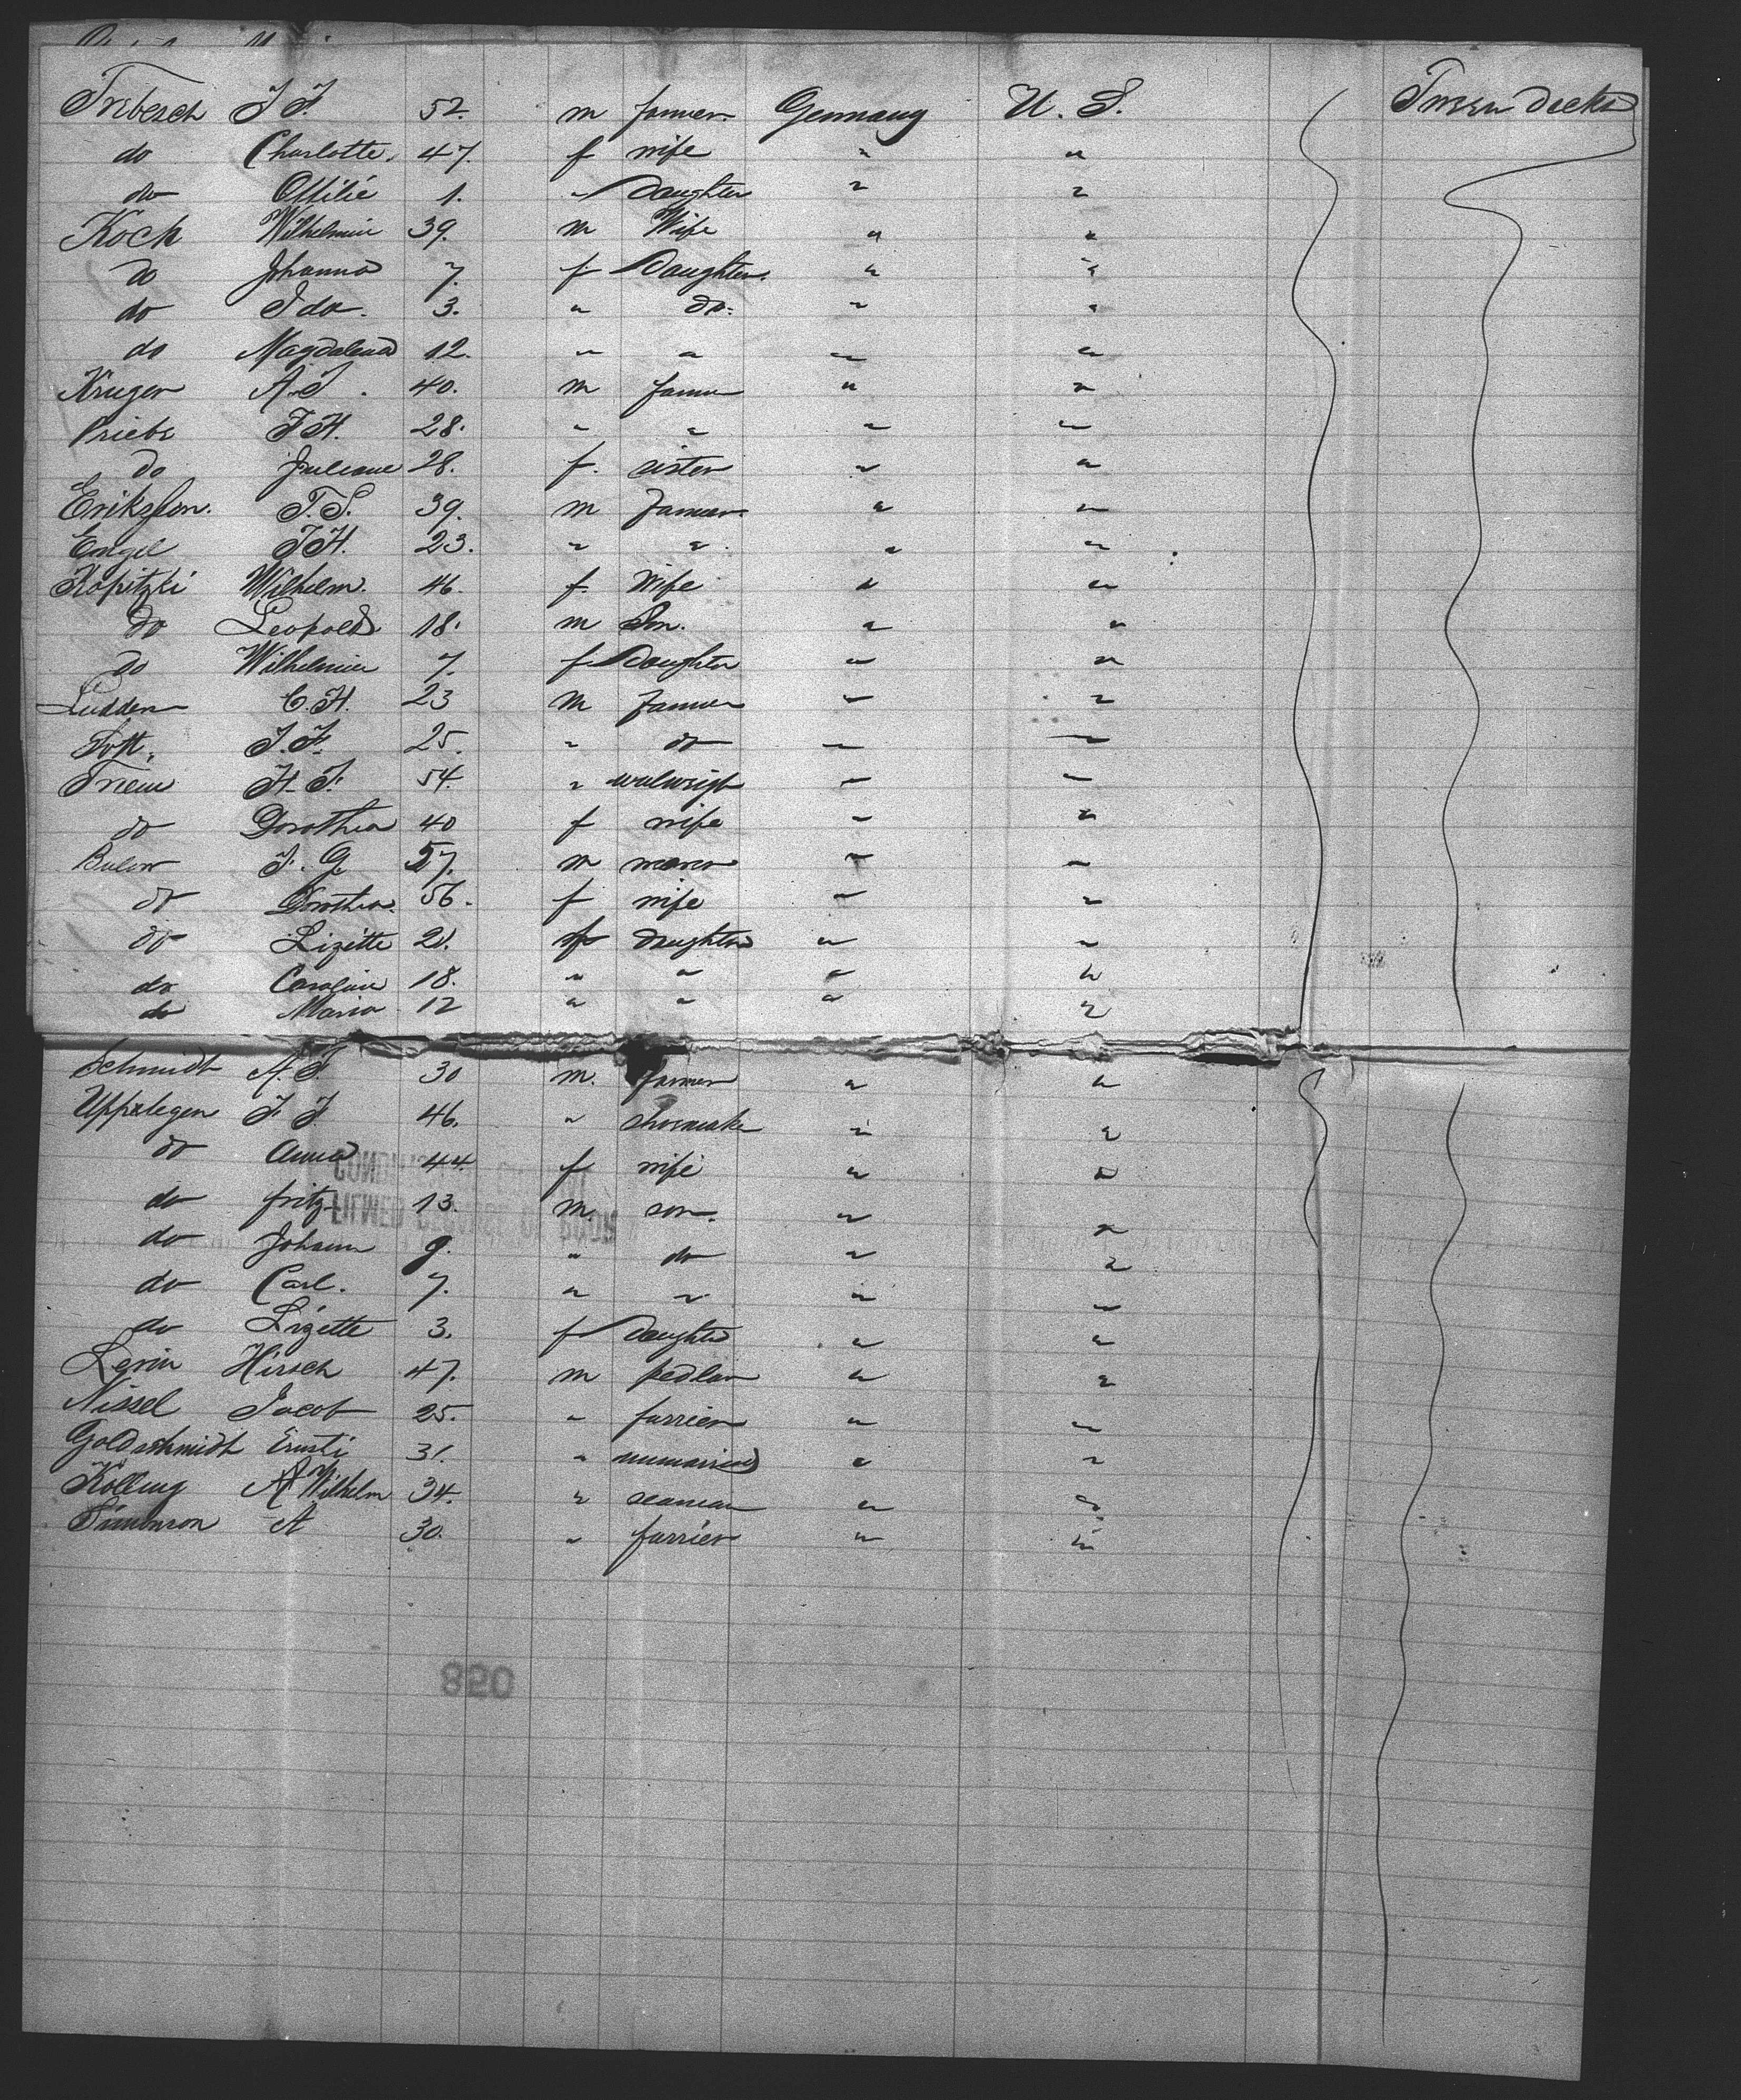 Tribesch J. F. 52. m farmer Germany U. S. Tween decks
do Charlotte. 47. f wife " "
do Ottilie 1. " Daughter " "
Koch Wilhelmine 39. m Wife " "
do Johanna 7. f Daughter. " "
do Ida. 3. " do. " "
do Magdalena 12. " " " "
Kruger A. F. 40. m farmer " "
Priebe F. H. 28. " " " "
do Juliane 28. f. sister " "
Eriksson. T. S. 39. m Farmer " "
Engel F. H. 23. " " " "
Kopitzki Wilhelm. 46. f. Wife " "
do Leopold 18. m Son. " "
do Wilhelmine 7. f Daughter " "
Ludden C. H. 23 m Farmer " "
J. F. 25. " do " "
H. F. 54. " " "
do Dorothea 40 f wife " "
Bulow F. G. 57. m " "
do Dorothea. 56. f wife " "
do Lizette 21. f daughter " "
do Caroline 18. " " " "
do Maria 12 " " " "
Schmidt A. F. 30 m. farmer " "
Uppelegen F. F. 46. " shoemaker " "
do Anna 44. f wife " "
do fritz 13. m. son. " "
do Johann 9. " do " "
do Carl. 7. " " " "
do Lizette 3. f daughter " "
Levin Hirsch 47. m pedlar " "
Nissel Jacob 25. " furrier " "
Goldschmidt Ernsti 31. " unmarried " "
Kolling A Wilhelm 34. " seaman " "
Simonson A 30. " furrier " "